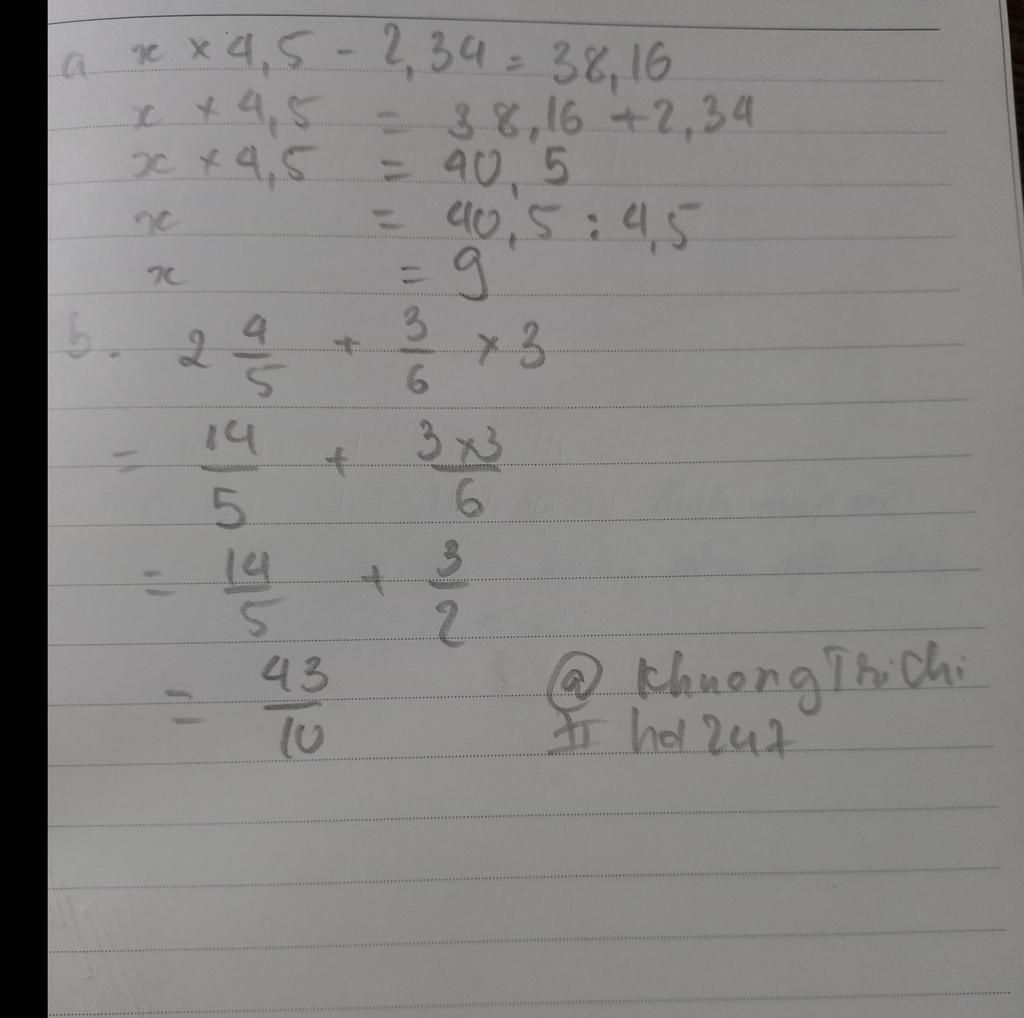 a x × 4,5 - 2,34 = 38,16
x × 4,5 = 38,16 + 2,34
x × 4,5 = 40,5
x = 40,5 : 4,5
x = 9
b. 2 4/5 + 3/6 × 3
= 14/5 + 3×3/6
= 14/5 + 3/2
= 43/10
@ KhuongTriChi
II hd 247